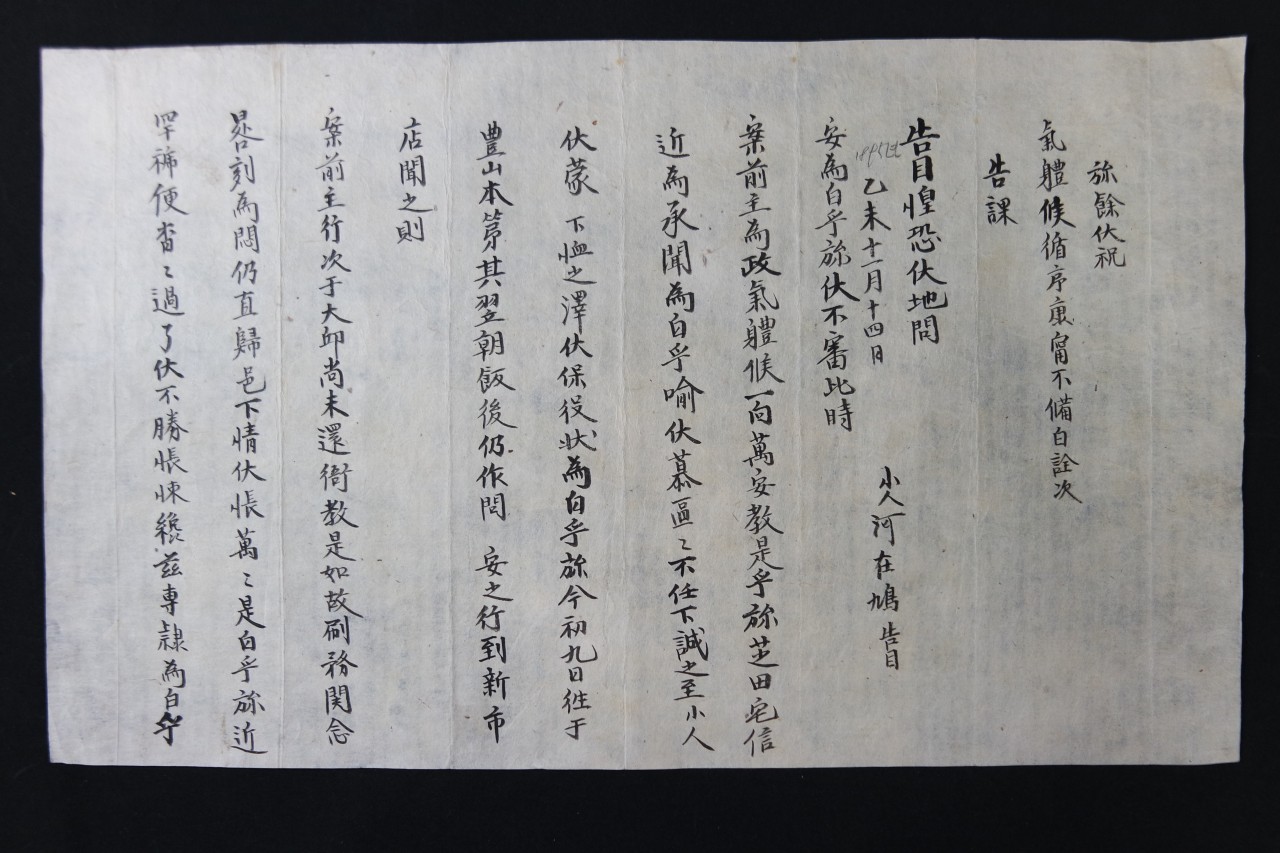 旀餘伏祝
氣體候循序康甯不備白詮次
告課
告目惶恐伏地問
乙未十一月十四日 小人河在鳩 告目
安為白乎旀伏不審此時
案前主為政氣體候一向萬安教是乎旀芝田宅信
近為承聞為白乎喩伏慕區〻不任下誠之至小人
伏蒙 下恤之澤伏保役狀為白乎旀今初九日徃于
豊山本第其翌朝飯後仍作問 安之行到新市
店聞之則
案前主行次于大邱尚未還衙教是如故刷務関念
晷刻為悶仍直歸邑下情伏悵萬〻是白乎旀近
罕褫便杳〻過了伏不勝悵悚纔玆專隷為白乎